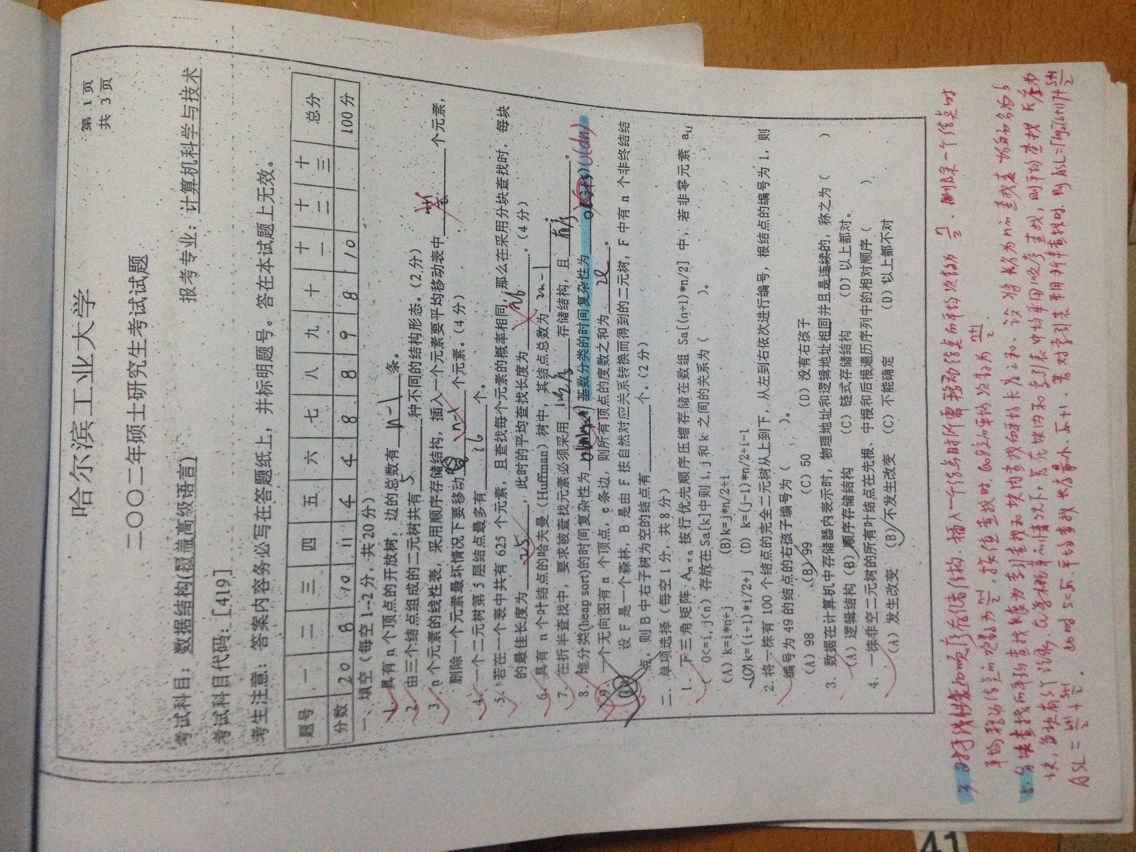 哈尔滨工业大学
第 1 页
共 3 页
二〇〇二年硕士研究生考试试题
考试科目：数据结构(涵盖高级语言) 报考专业：计算机科学与技术
考试科目代码：[419]
考生注意：答案内容务必写在答题纸上，并标明题号。答在本试题上无效。
题号 一 二 三 四 五 六 七 八 九 十 十一 十二 十三 总分
分数 20 8 10 11 4 4 8 8 9 8 10 100分
一、填空（每空1-2分，共20分）
1. 具有 n 个顶点的开放树，边的总数有 n-1 条。
2. 由三个结点组成的二元树共有 5 种不同的结构形态。(2分)
3. n 个元素的线性表，采用顺序存储结构，插入一个元素要平均移动表中 个元素，
删除一个元素最坏情况下要移动 n-1 个元素。(4分)
4. 一个二元树第 5 层结点最多有 16 个。
5. 若在一个表中共有 625 个元素，且查找每个元素的概率相同，那么在采用分块查找时，每块
的最佳长度为 25 ，此时的平均查找长度为 。(4分)
6. 具有 n 个叶结点的哈夫曼（Huffman）树中，其结点总数为 2n-1
7. 在折半查找中，要求被查找元素必须采用 顺序 存储结构，且 有序 。
8. 堆分类(heap sort)的时间复杂性为 基数分类的时间复杂性为 O(dn)
9. 一个无向图有 n 个顶点，e 条边，则所有顶点的度数之和为 2e 。
10. 设 F 是一个森林，B 是由 F 按自然对应关系转换而得到的二元树，F 中有 n 个非终结结
点，则 B 中右子树为空的结点有 个。(2分)
二、单项选择（每空 1 分，共 8 分）
1. 下三角矩阵 An×n 按行优先顺序压缩存储在数组 Sa[(n+1)*n/2] 中，若非零元素 aij
（ 0<=i,j<n）存放在 Sa[k] 中则 i,j 和 k 之间的关系为（ ）。
(A) k=i*n+j (B) k=j*n/2+i
(C) k=(i+1)*i/2+j (D) k=(j-1)*n/2+i-1
2. 将一株有 100 个结点的完全二元树从上到下，从左到右依次进行编号，根结点的编号为 1，则
编号为 49 的结点的右孩子编号为（ ）。
(A) 98 (B) 99 (C) 50 (D) 没有右孩子
3. 数据在计算机中存储器内表示时，物理地址和逻辑地址相同并且是连续的，称之为（ ）
(A) 逻辑结构 (B) 顺序存储结构 (C) 链式存储结构 (D) 以上都对。
4. 一株非空二元树的所有叶结点在先根、中根和后根遍历序列中的相对顺序（ ）
(A) 发生改变 (B) 不发生改变 (C) 不能确定 (D) 以上都不对
3. 对于线性表的顺序存储结构，插入一个结点时所需移动结点的平均次数为 n/2，删除一个结点时
平均移动结点的次数为 (n-1)/2，按值查找时，的平均次数为 (n+1)/2